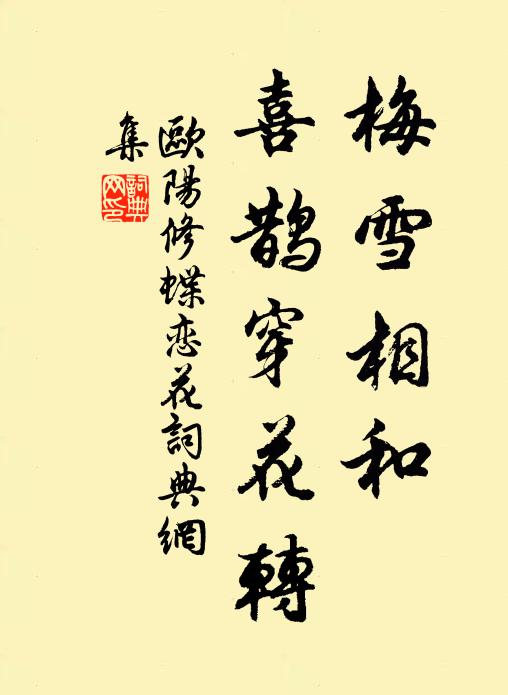 梅雪相和
喜鹊穿花轉
歐陽修蝶恋花詞典網
集
詞典网印